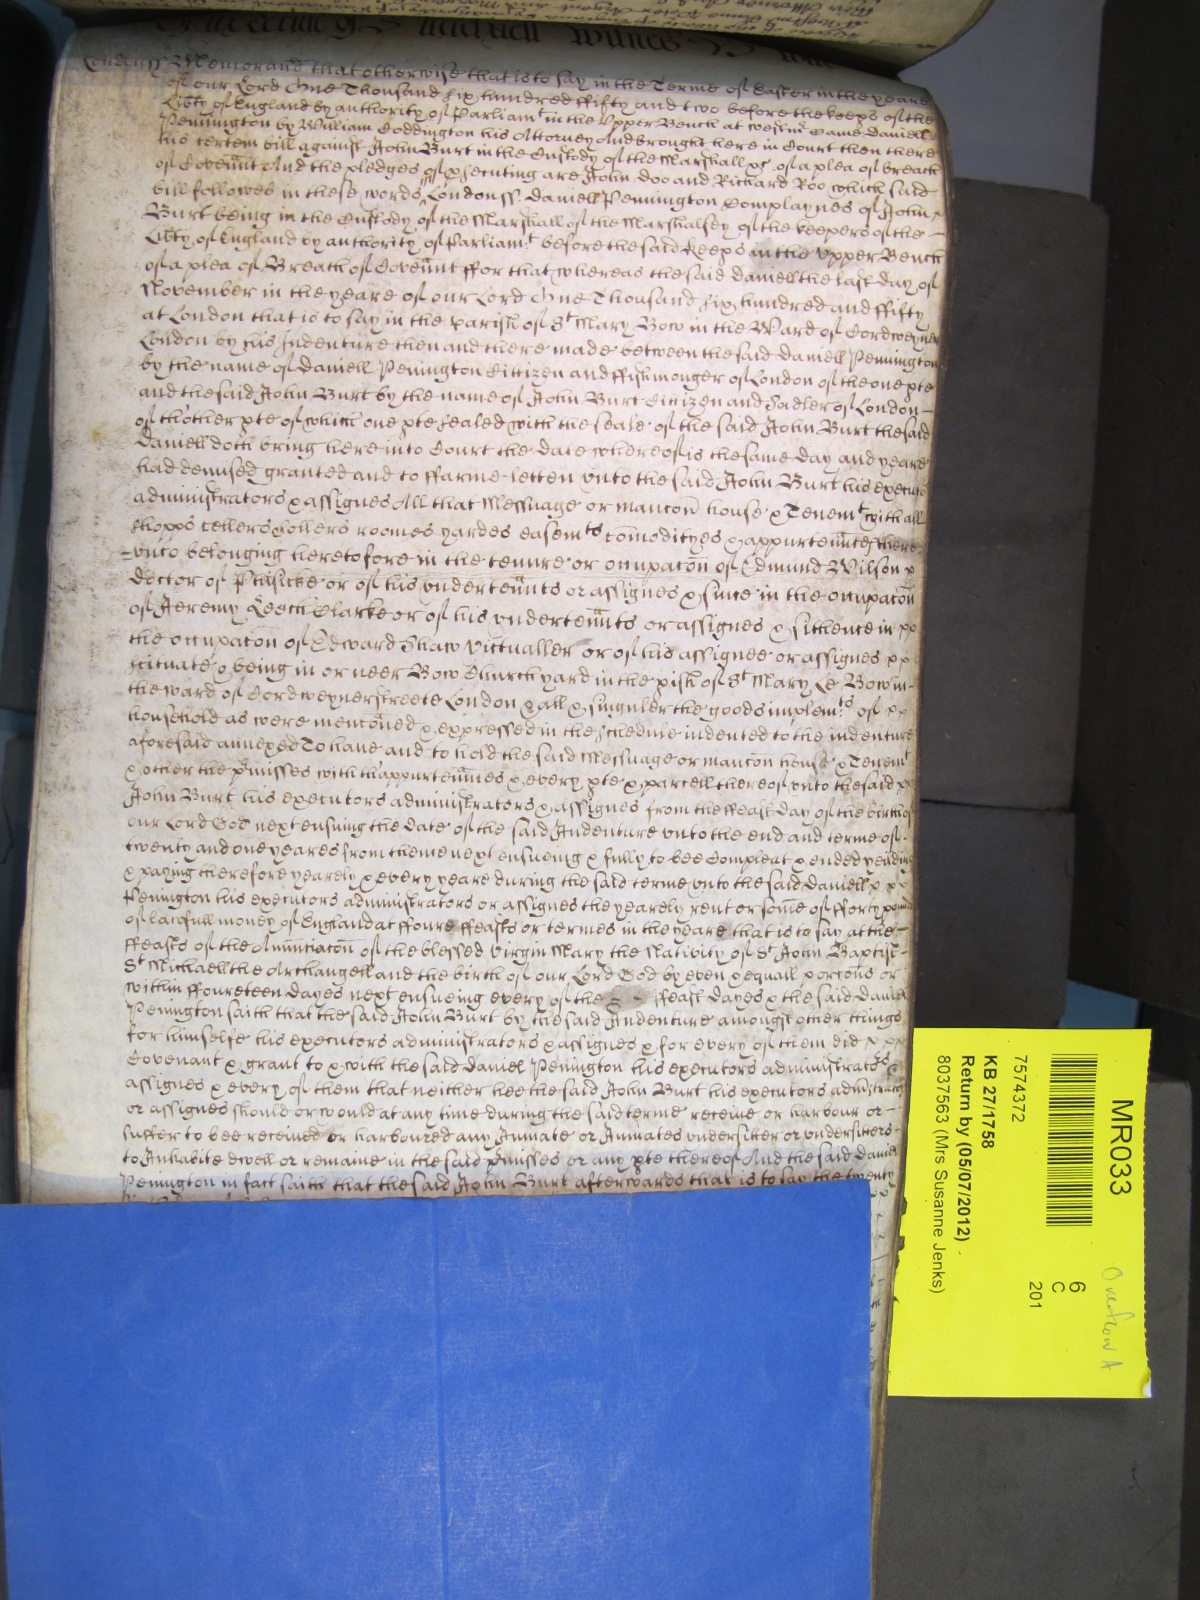 Londonss Memorand that otherwise that is to say in the Terme of Easter in the yeare
of our Lord One Thousand six hundred ffifty and two before the keeps of the
Lib͠ty of England by authority of Parliamt in the Upper Bench at Westmr Came Daniell
Pennington by William Coddington his Attorney And brought here in Court then there
his certein bill against John Burt in the Custody of the Marshall &c of a plea of breach
of Coven͠nt And the pledges of prosecuting are John Doo and Richard Roo which said
bill followes in these words Londonss Daniell Pennington Complaynes of John
Burt being in the Custody of the Marshall of the Marshalsey of the keepers of the
Lib͠ty of England by authority of Parliamt before the said keeps in the Upper Bench
of a plea of Breach of Coven͠nt ffor that whereas the said Daniell the last day of
November in the yeare of our Lord One Thousand six hundred and ffifty
at London that is to say in the parish of St Mary Bow in the Ward of Cordweyner
London by his Indenture then and there made betweene the said Daniell Pennington
by the name of Daniell Penington Cittizen and ffishmonger of London of the one pte
and the said John Burt by the name of John Burt Cittizen and Sadler of London
of thother pte of which one pte sealed with the seale of the said John Burt the said
Daniell doth bring here into Court the date whereof is the same day and yeare
had demised granted and to ffarme letten vnto the said John Burt his executors
administrators & assignes All that Messuage or mancon͠ house & Tenemt with all
shopps cellers sollers roomes yardes easemts com͠odityes & appurten͠nces there
vnto belonging heretofore in the tenure or occupacon͠ of Edmund Wilson
Doctor of Phisicke or of his vnderten͠nts or assignes & since in the occupacon͠
of Jeremy Leech Clarke or of his vnderten͠nts or assignes & sithence in
the occupacon͠ of Edward Shaw Victualler or of his assignee or assignes
scituate & being in or neer Bow Church yard in the pish of St Mary Le Bow in
the ward of Cordweynerstreete London & all & singuler the goods implemts of
household as were menc͠oned & expressed in the Schedule indented to the indenture
aforesaid annexed To haue and to hold the said Messuage or mancon house & Tenemt
& other the p͠misses with thappurten͠nces & every pte & parcell thereof vnto the said
John Burt his executors administrators & assignes from the ffeast day of the birth of
our Lord God next ensuing the date of the said Indenture vnto the end and terme of
twenty and one yeares from thence next ensueing & fully to bee Compleat & ended yeilding
& paying therefore yearely & every yeare during the said terme vnto the said Daniell
Penington his executors administrators or assignes the yearely rent or som͠e of fforty pounds
of lawfull money of England at ffoure ffeasts or termes in the yeare that is to say at the
ffeasts of the Anuntiacon͠ of the blessed Virgin Mary the Nativity of St John Baptist
St Michaell the Archangell and the birth of our Lord God by even & equall porcons͠ or
within ffoureteen dayes next ensueing every of the ffeast dayes & the said Daniell
Penington saith that the said John Burt by the said Indenture amongst other things
for himselfe his executors administrators & assignes & for every of them did
Covenant & grant to & with the said Daniel Penington his executors administrators
assignes & every of them that neither hee the said John Burt his executors administrators
or assignes should or would at any time during the said terme receiue or harbour or
suffer to bee receiued or harboured any Inmate or Inmates vndersitter or vndersitters
to Inhabite dwell or remaine in the said p͠misses or any pte thereof And the said Daniel
Penington in fact saith that the said John Burt afterwards that is to say the twenty
MR033
7574372
KB 27/1758
Return by (05/07/2012)
8037563 (Mrs Susanne Jenks)
6
C
201
Overflow A